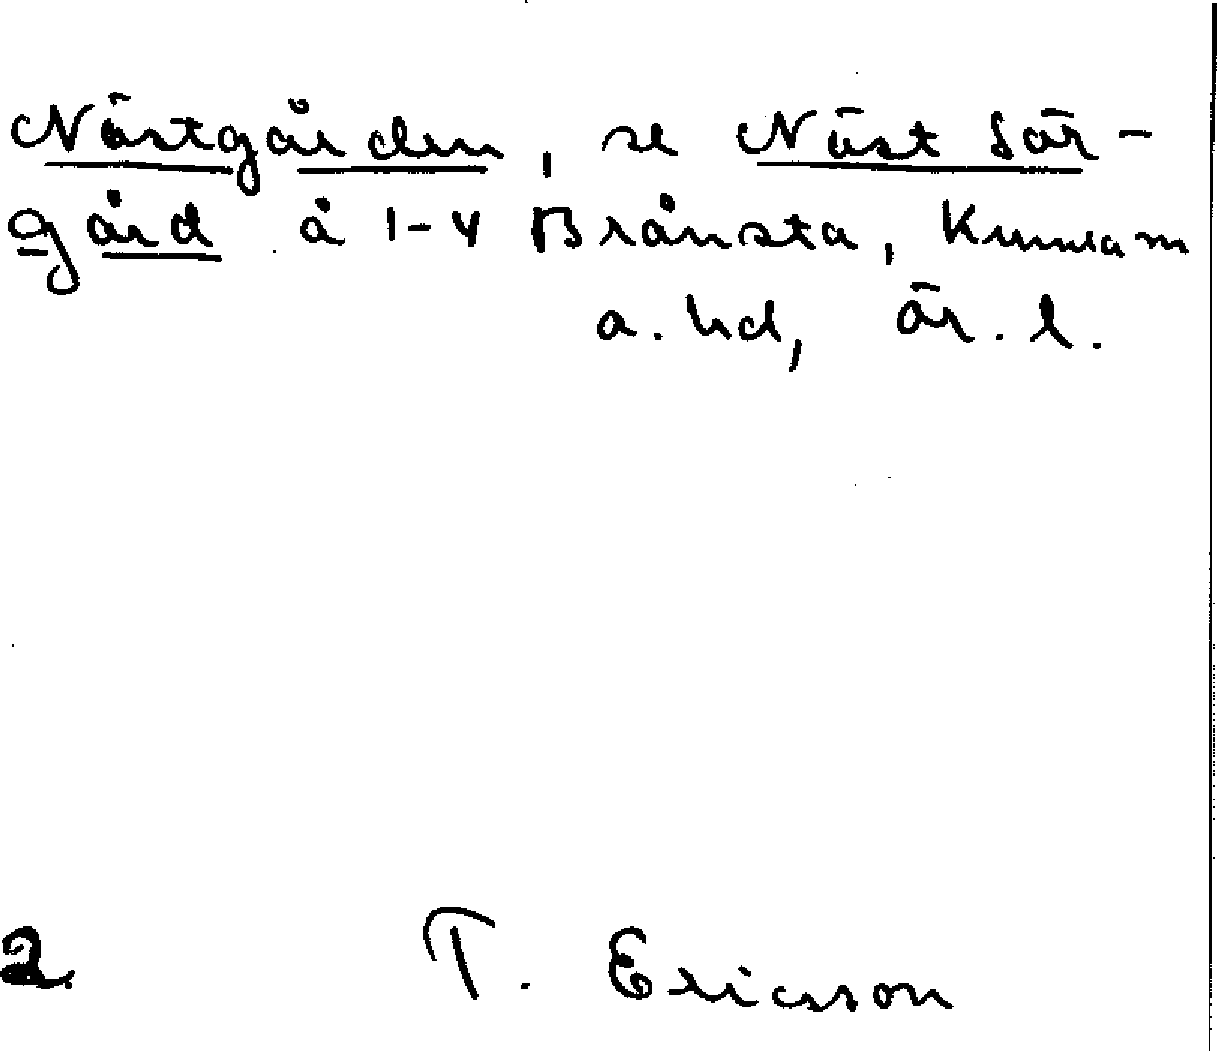 Nästgården, se Näst Sör-
gård å 1-4 Brånsta, Kumla m
a. hd, Ör. l.
2. T. Ericsson